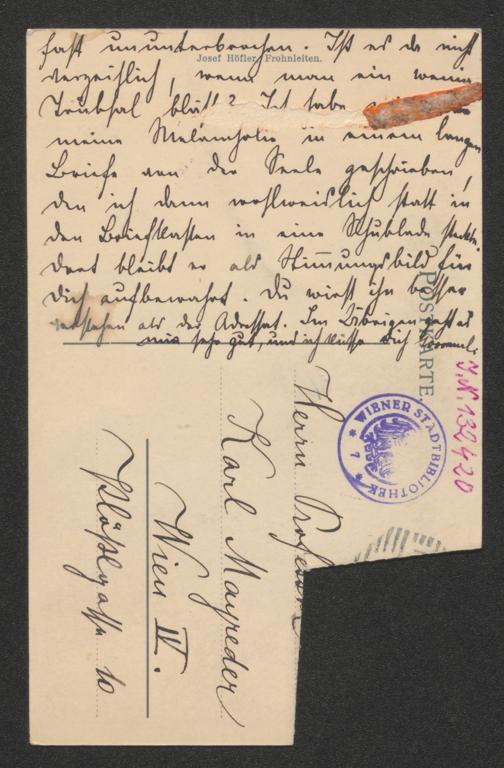 fast ununterbrochen. Ist es da nicht
Josef Höfler, Frohnleiten.
verzeihlich, wenn man ein wenig
Trübsal bläst? Ich habe
meine Melancholie in einem langen
Briefe von der Seele geschrieben,
den ich dann wohlweislich statt in
den Briefkasten in eine Schublade steckte.
Dort bleibt er als Stimmungsbild für
Dich aufbewahrt. Du wirst ihn besser
verstehen als der Adressat. Im Übrigen geht es
mir sehr gut, und ich küsse Dich
POSTKARTE
J.N. 132420
WIENER STADTBIBLIOTHEK
7
Herrn Professor
Karl Mayreder
Wien IV.
Plößlgasse 10